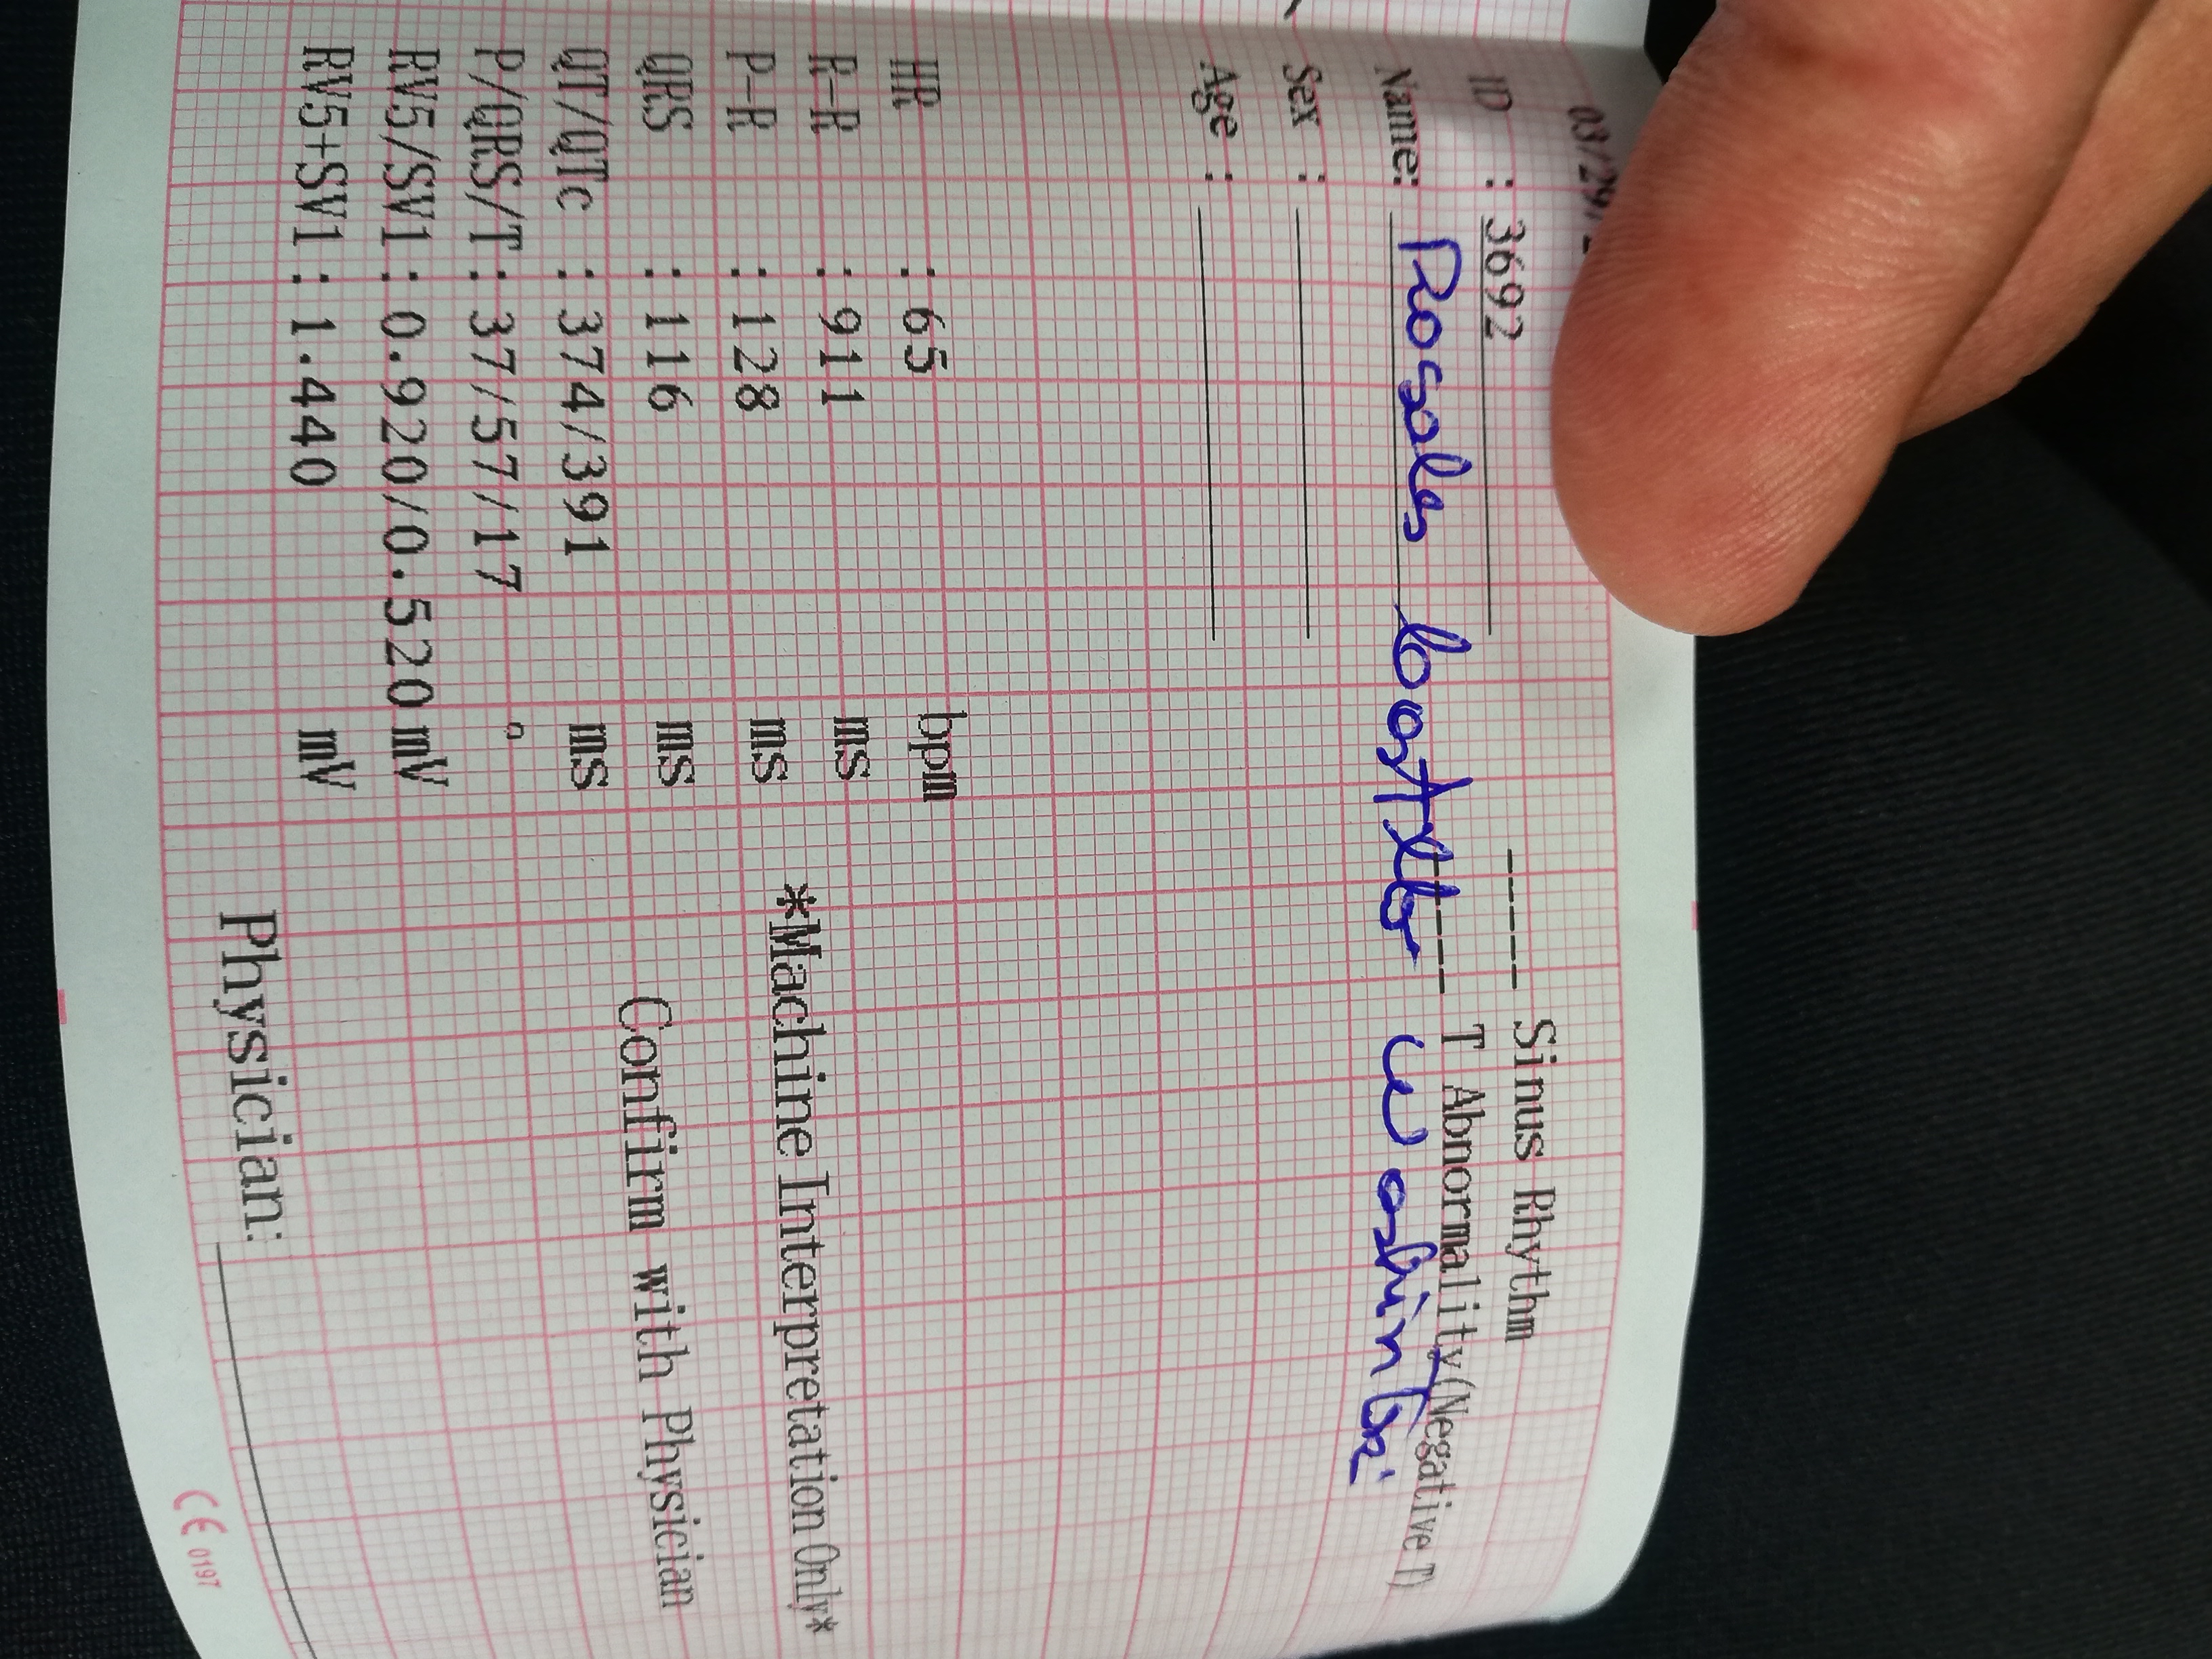 03/29/
ID : 3692
Name: Rosales Castillo Washinton
Sex :
Age :
HR : 65 bpm
R-R : 911 ms
P-R : 128 ms
QRS : 116 ms
QT/QTc : 374/391 ms
P/QRS/T : 37/57/17 °
RV5/SV1 : 0.920/0.520 mV
RV5+SV1 : 1.440 mV
----- Sinus Rhythm
----- T Abnormality(Negative T)
*Machine Interpretation Only*
Confirm with Physician
Physician:
CE 0197